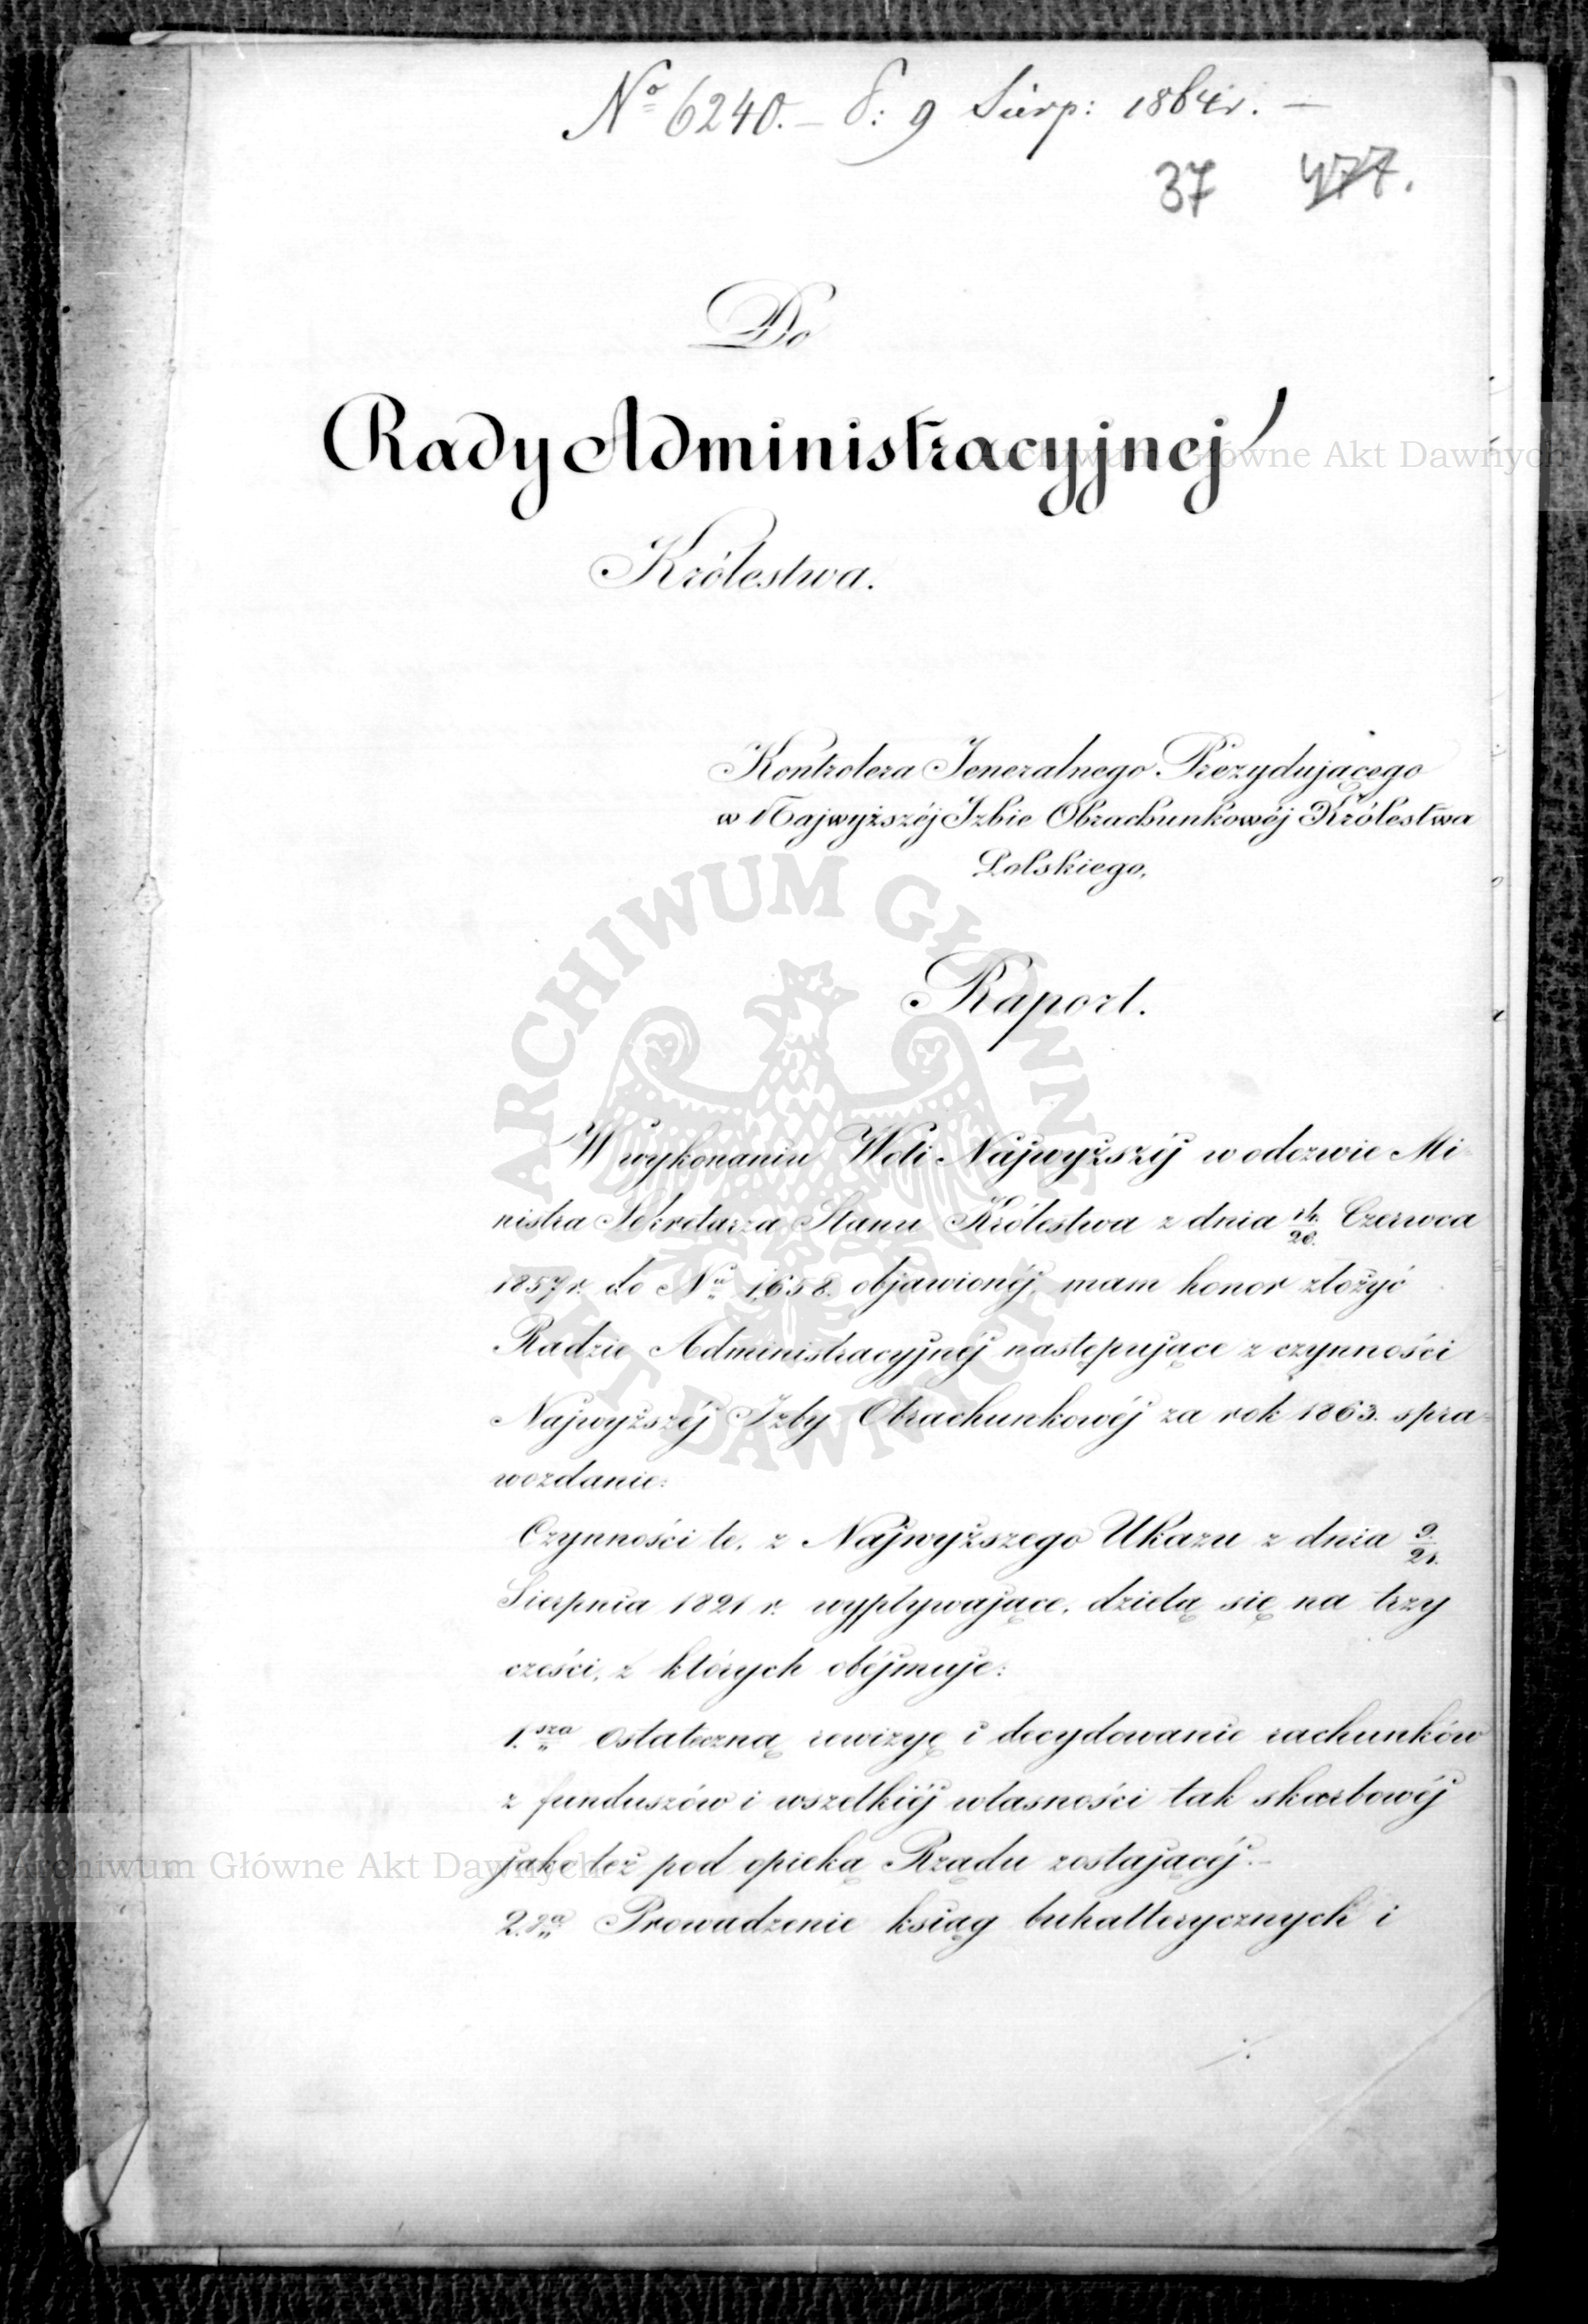 No 6240. – d: 9 Sierp: 1864 r. –
37 477.
Do
Rady Administracyjnej
Królestwa.
Kontrolera Jeneralnego Prezydującego
w Najwyższéj Izbie Obrachunkowéj Królestwa
Polskiego,
Raport.
W wykonaniu Woli Najwyższéj w odezwie Mi-
nistra Sekretarza Stanu Królestwa z dnia 14/26. Czerwca
1857 r. do Nu 1,658. objawionéj, mam honor złożyć
Radzie Administracyjnéj następujące z czynności
Najwyższéj Izby Obrachunkowéj za rok 1863. spra-
wozdanie:
Czynności te, z Najwyższego Ukazu z dnia 9/21.
Sierpnia 1821 r. wypływające, dzielą się na trzy
cześci, z których obéjmuje:
1.sza Ostateczną rewizyę i decydowanie rachunków
z funduszów i wszelkiéj własności tak skarbowéj
jako też pod opieką Rządu zostającéj. –
2.ga Prowadzenie ksiąg buhalterycznych i
./.
ARCHIWUM GŁÓWNE AKT DAWNYCH
Archiwum Główne Akt Dawnych
Archiwum Główne Akt Dawnych